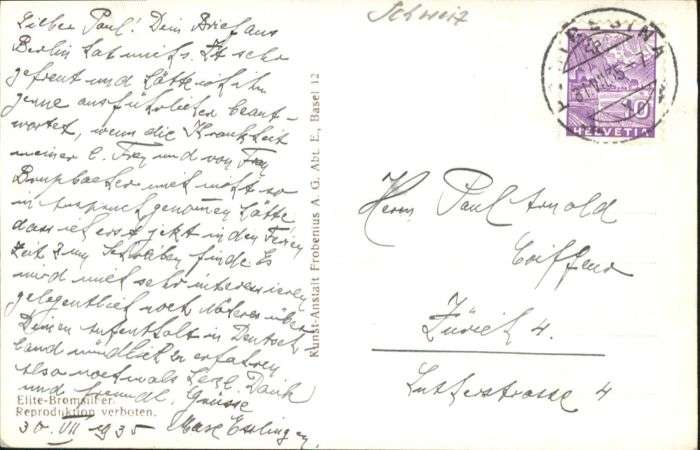 Schweiz
Lieber Paul! Dein Brief aus
Berlin hat mich s. Zt sehr
gefreut und hätte ich ihn
gerne ausführlicher beant-
wortet, wenn die Krankheit
meiner l. Frau und von Frau
Brupbacher mich nicht so
in Anspruch genommen hätte
dass ich erst jetzt in den Ferien
Zeit zum Schreiben finde. Es
wird mich sehr interessieren
gelegentlich noch Näheres über
Deinen Aufenthalt in Deutsch-
land mündlich zu erfahren
Also nochmals herzl. Dank
und freundl. Grüsse
30. VII 1935 Max Esslinger.
Elite-Bromsilber.
Reproduktion verboten.
Kunst-Anstalt Frobenius A. G. Abt. E., Basel 12
10
HELVETIA
Herrn Paul Arnold
Coiffeur
Zürich 4.
Lutherstrasse 4